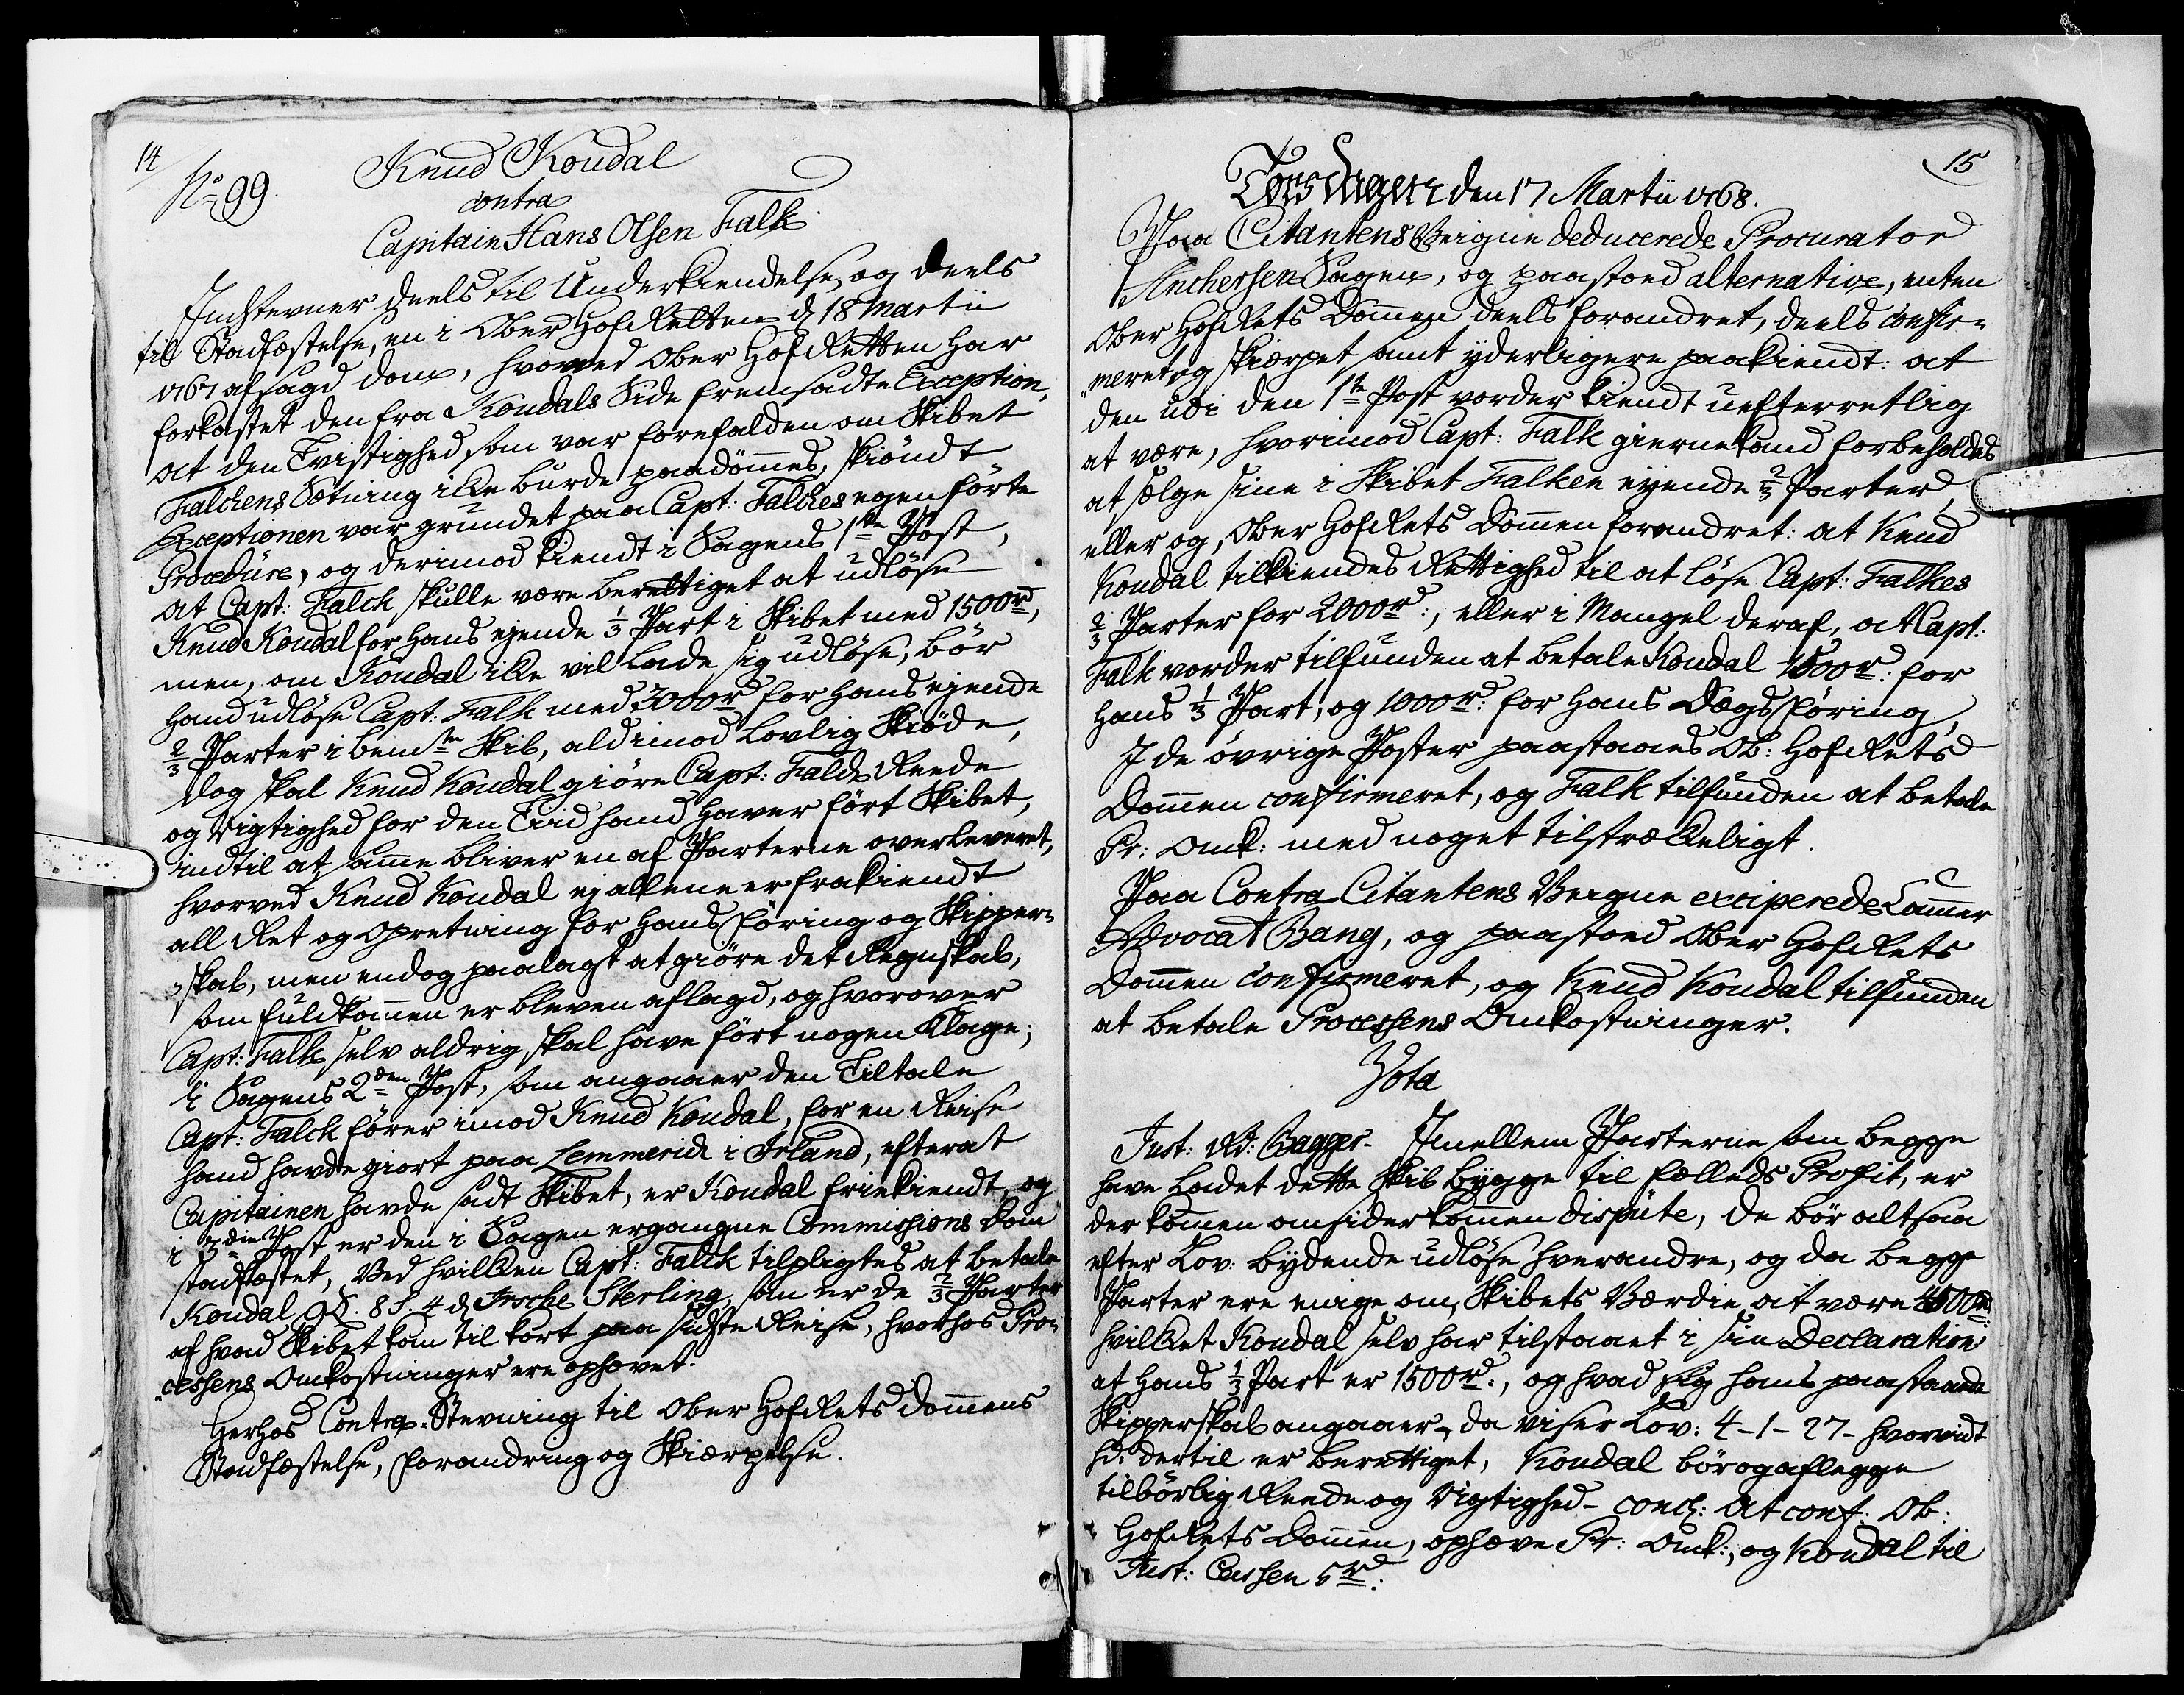 14
No 99.
Knud Koudal
contra
Capitain Hans Olsen Falk.
Indstevner deels til Underkiendelse, og deels
til Stadfæstelse, en i Ober Hof Retten d 18 Martii
1767 afsagd Dom, hvorved Ober Hof Retten har
forkastet den fra Koudals Side fremsadte Exception,
at den Tvistighed som var forefalden om Skibet
Falchens Sætning ikke burde paadömmes, skiöndt
Exceptionen var grundet paa Capt: Falches egen förte
Procedüre, og derimod kiendt i Sagens 1ste Post,
at Capt: Falck skulle være berettiget at udlöse
Knud Koudal for hans ejende 1/3 Part i Skibet med 1500rd,
men, om Koudal ikke vil lade sig udlöse, bör
hand udlöse Capt. Falk med 3000rd for hans ejende
2/3 Parter i bemte Skib, alt imod lovlig Skiöde,
dog skal Knud Koudal giöre Capt: Falck Reede
og Rigtighed for den Tiid hand haver fört Skibet,
indtil at samme bliver en af Parterne overleveret,
hvorved Knud Koudal ej allene er frakiendt
all Ret og Opretning for hans föring og Skipper=
=skab, men endog paalagt at giöre det Regnskab,
som fuldkommen er bleven aflagd, og hvorover
Capt: Falk selv aldrig skal have fört nogen Klage;
i Sagens 2den Post, som angaaer den Tiltale
Capt: Falck förer imod Knud Koudal, for en Reise
hand havde giort paa Lemmerick i Irland, efter at
Capitainen havde sadt Skibet, er Koudal friekiendt, og
i 3die Post er den i Sagen ergangne Commissions Dom
stadfæstet, ved hvilken Capt: Falck tilpligtes at betale
Koudal 9£. 8 S. 4 d Irsche Sterling, som er de 2/3 Parter
af hvad Skibet kom til kort paa sidste Reise, hvorhos Pro=
=cessens Omkostninger ere ophævet.
Herhos Contra-Stevning til Ober Hof Rets Dommens
Stadfæstelse, forandring og Skiærpelse.
15
Torsdagen den 17 Martii 1768.
Paa Citantens Veigne deducerede Procurator
Anchersen Sagen, og paastoed alternative, enten
Ober Hof Rets Dommen deels forandret, deels confir=
=meret og skiærpet samt yderligere paakiendt: at
den udi den 1ste Post vorder kiendt uefterretlig
at være, hvorimod Capt: Falk gierne kand forbeholdes
at sælge sine i Skibet Falken ejende 2/3 Parter,
eller og, Ober Hof Rets Dommen forandret: at Knud
Koudal tilkiendes Rettighed til at löse Capt: Falkes
2/3 Parter for 2000rd:, eller i Mangel deraf, at Capt:
Falk vorder tilfunden at betale Koudal 1500rd: for
hans 1/3 Part, og 1000rd: for hans Dags föring,
I de övrige Poster paastaaes Ob: Hof Rets
Dommen confirmeret, og Falk tilfunden at betale
Pr: Omk: med noget tilstrækkeligt.
Paa Contra Citantens Veigne exciperede Cammer
Advocat Bang, og paastoed Ober Hof Rets
Dommen confirmeret, og Knud Koudal tilfunden
at betale Processens Omkostninger.
Vota
Just: Rd: Bagger. Imellem Parterne som begge
have ladet dette Skib bygge til fælleds Profit, er
der kommen omsider kommen dispüte, de bör altsaa
efter Lov: bydende udlöse hverandre, og da begge
Parter ere enige om, Skibets Værdie at være 4500rd:
hvilket Koudal selv har tilstaaet i sin Declaration
at hans 1/3 Part er 1500rd:, og hvad hans paastaaede
Skipperskab angaaer, da viser Lov: 4-1-27- hvorvidt
hd: dertil er berettiget, Koudal bör og aflegge
tilbörlig Reede og Rigtighed- concl: At conf: Ob:
Hof Rets Dommen, ophæve Pr: Omk:, og Koudal til
Just: Cassen 5rd: